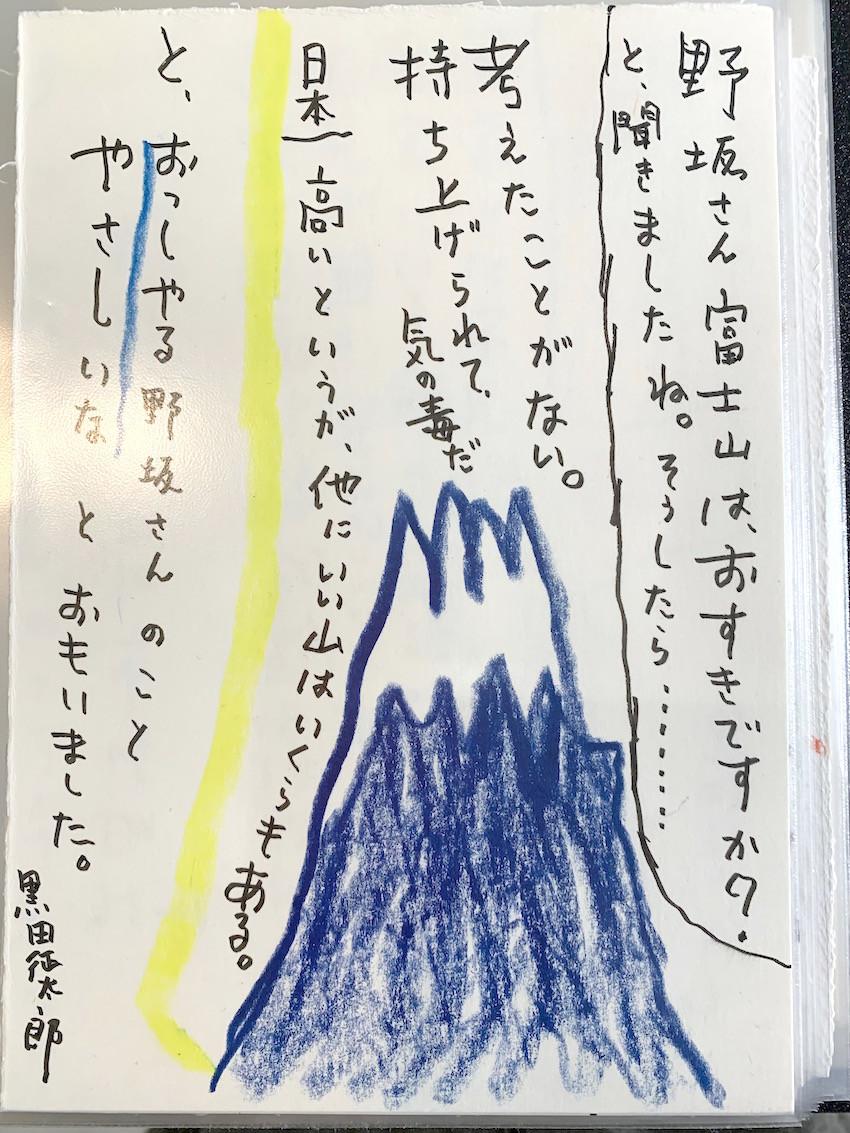 野坂さん富士山は、おすきですか?
と、聞きましたね。そうしたら………
考えたことがない。
持ち上げられて、
気の毒だ
日本一高いというが、他にいい山はいくらもある。
と、おっしゃる野坂さんのこと
やさしいなとおもいました。
黒田征太郎